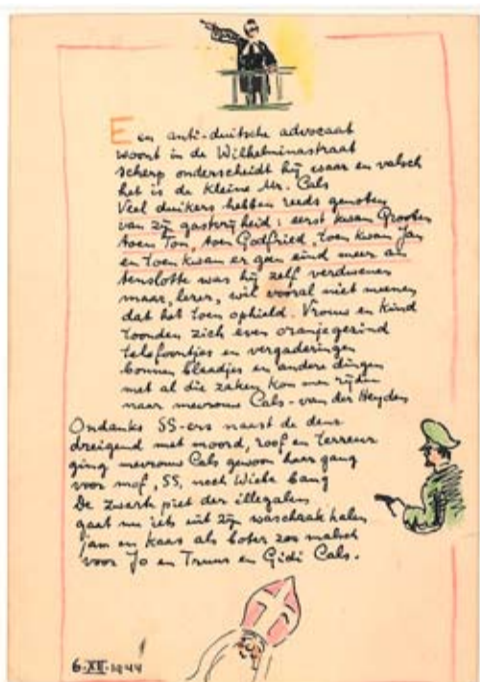 Een anti-duitsche advocaat
woont in de Wilhelminastraat
scherp onderscheidt hij waar en valsch
het is de kleine Mr. Cals
Veel duikers hebben reeds genoten
van zijn gastvrijheid: eerst kwam Grooten
toen Ton, toen Godfried, toen kwam Jan
en toen kwam er geen eind meer an
tenslotte was hij zelf verdwenen
maar, lezer, wil vooral niet meenen
dat het toen ophield. Vrouw en kind
toonden zich even oranjegezind
telefoontjes en vergaderingen
bonnen blaadjes en andere dingen
met al die zaken kon men rijden
naar mevrouw Cals-van der Heyden
Ondanks SS-ers naast de deur
dreigend met moord, roof en terreur
ging mevrouw Cals gewoon haar gang
voor mof, SS, noch Wiebe bang
De zwarte piet der illegalen
gaat nu iets uit zijn waschzak halen
jam en kaas als boter zoo malsch
voor Jo en Truus en Gidi Cals.
6-XII-1944